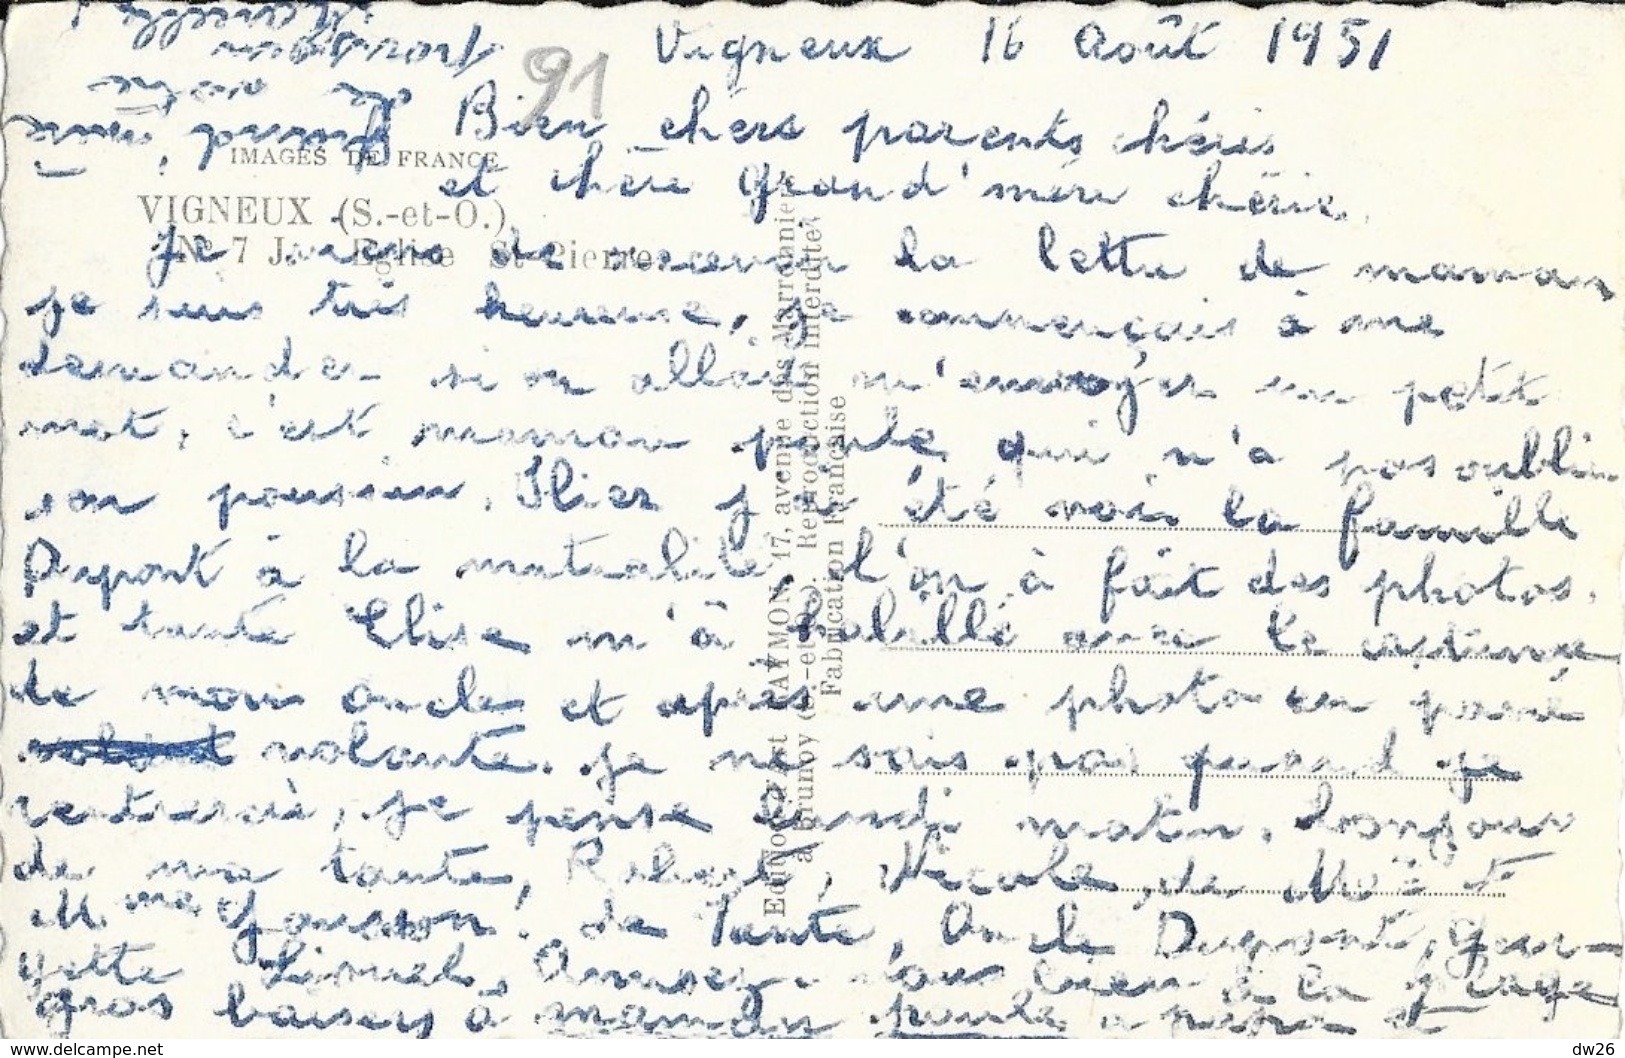 Vigneux 16 Août 1951
91
Bien chers parents chéris
IMAGES DE FRANCE
et chère grand'mère chérie.
VIGNEUX (S.-et-O.)
N° 7 J. Eglise St Pierre
Je viens de recevoir la lettre de maman
je suis très heureuse, je commençais à me
demander si on allait m'envoyer un petit
mot, c'est maman poule qui n'a pas oublier
son poussin. Hier j'ai été vois la famille
Dupont à la mutualité, l'on à fait des photos,
et tante Elise m'à habillé avec le costume
de mon oncle et après une photo en paré
volante. je ne sais pas quand je
rentrerai, je pense lundi matin. bonjour
de ma tante, Robert, Nicole, de Mr et
Mme Gourson, de Tante, Oncle Dupont, geor-
gette Lionel. Amusez-vous bien à la plage
gros baisers à maman poule a papa et
Editions RAYMON, 17, avenue des Marronniers
à Brunoy (S.-et-O.). Reproduction Interdite
Fabrication Française
delcampe.net
dw26